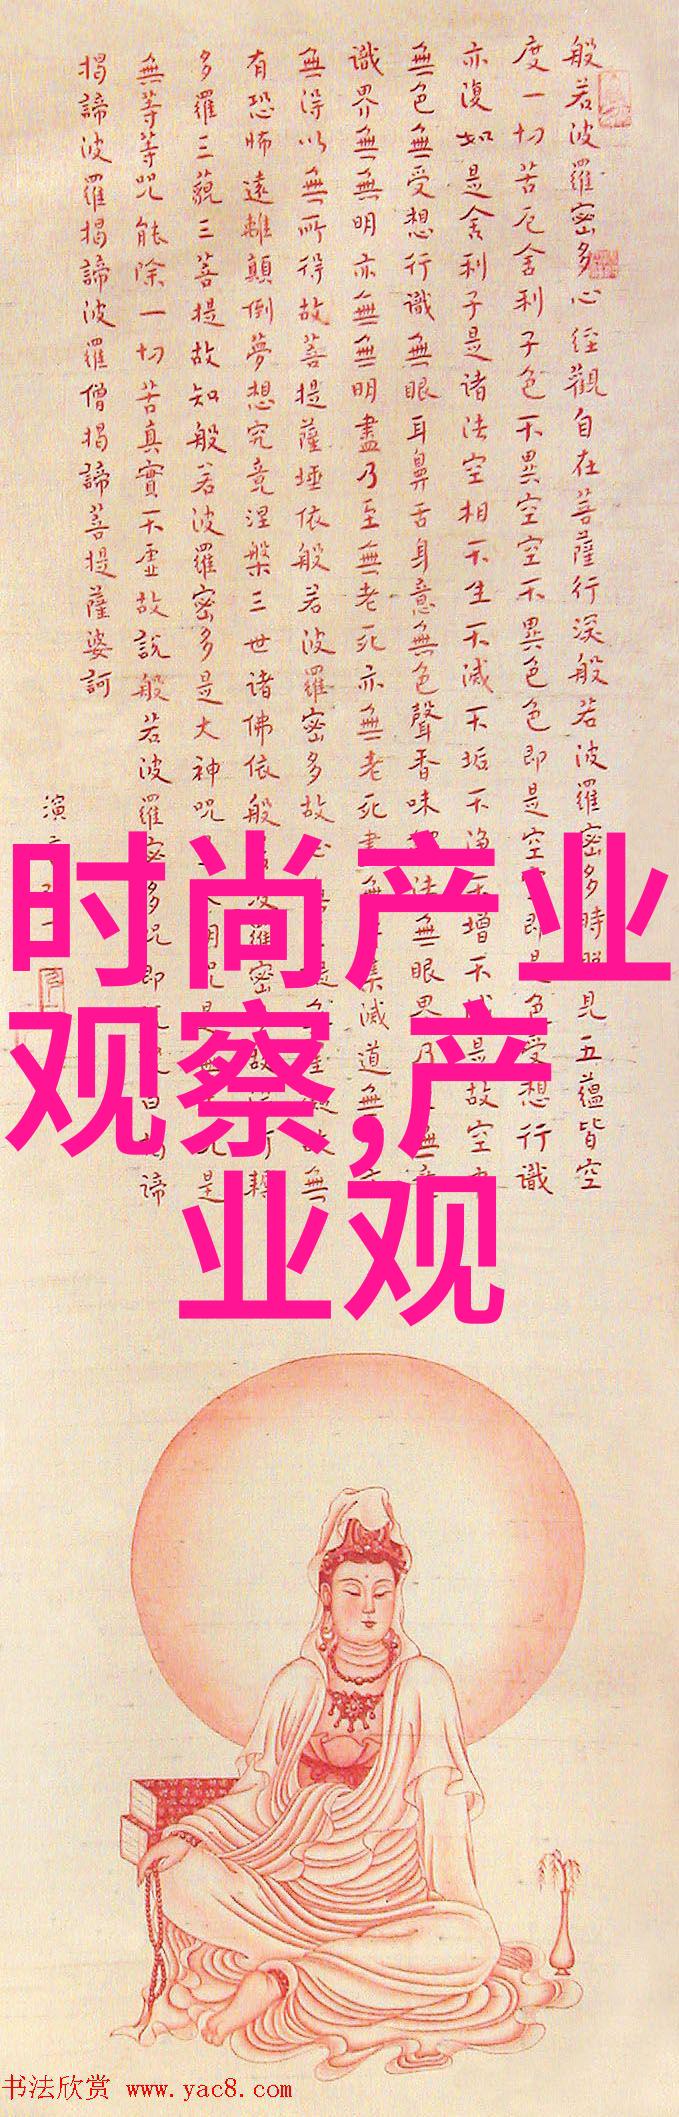 般若波羅密多心经觀自在菩薩行深般若波羅密多時照見五蘊皆空
度一切苦厄舍利子色不異空空不異色色即是空即是色受想行識
亦復如是舍利子是诸法空相不生不滅不垢不淨不增不是故空
無色無受想行識無眼耳鼻舌身意無色聲香味法無眼界乃無
識界無無明亦無無明盡乃至無老死亦無老死盡無集滅道無
無得以無所得故菩提薩埵依般若波羅密多故心無故無
有恐怖遠離顛倒夢想究竟涅槃三世诸佛依般若波羅密故
多羅三藐三菩提故知般若波羅密多是大神咒是明咒是咒是
無等等咒能除一切苦真實不虚故説般若波羅密多咒即咒曰揭諦
揭諦波羅揭諦波羅僧揭諦菩提薩婆訶
演
时尚产业
观察,产
业观
书法欣赏 www.yac8.com